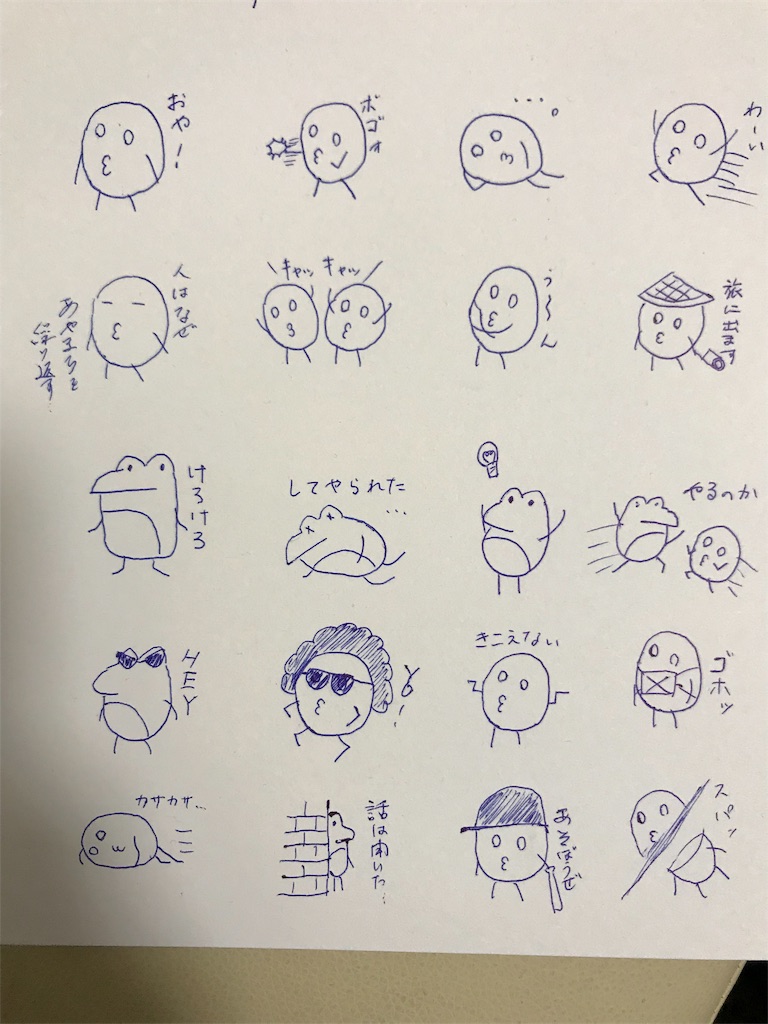 おや!
ボゴォ
...。
わーい
人はなぜ
あやまちを
繰り返す…
キャッ キャッ
う〜ん
旅に出ます
けろけろ
してやられた
…
やるのか
HEY
Yo!
きこえない
ゴホッ
カサカサ…
話は聞いた…
あそぼうぜ
スパッ